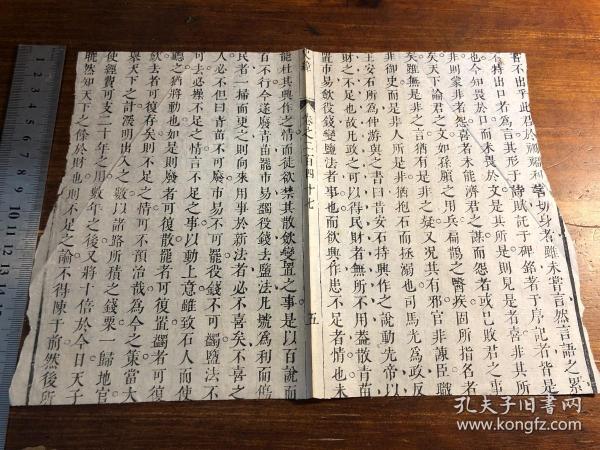 苦不出乎此君於禍福利害切身者雖未嘗言然言語之累
不特出口者為言其形于詩賦託于碑銘著于序記者皆是
也今知畏於口而未畏於文是其所是則見是者喜非其所
非則蒙非者怨喜者未能濟君之謀而怨者或已敗君之事
矣天下論君之文如孫臏之用兵扁鵲之醫疾固所指名者
矣雖無是非之言猶有是非之疑又況其有耶官非諫臣職
非御史而是非人所是非猶抱石而拯溺也司馬光為政反
王安石所為仲游與之書曰昔安石持興作之說動先帝以
財之不足也故凡政之可以得民財者無所不用蓋散青苗
置市易斂役錢變鹽法者事也而欲興作患不足者情也未
卷之一百四十七
五
能杜其興作之情而徒欲禁其散斂變置之事是以百說而
百不行今遂廢青苗罷市易蠲役錢去鹽法凡號為利而傷
民者一掃而更之則向來用事於新法者必不喜矣不喜之
人必不但曰青苗不可廢市易不可罷役錢不可蠲鹽法不
可去必操不足之情言不足之事以動上意雖致石人而使
聽之猶將動也如是則廢者可復散罷者可復置蠲者可復
斂去者可復存矣則不足之情可不預治哉為今之策當大
舉天下之計深明出入之數以諸路所積之錢粟一歸地官
使經費可支二十年之用數年之後又將十倍於今日天子
曉然知天下之餘於財也則不足之論不得陳于前然後所
孔夫子旧书网
www.kongfz.com